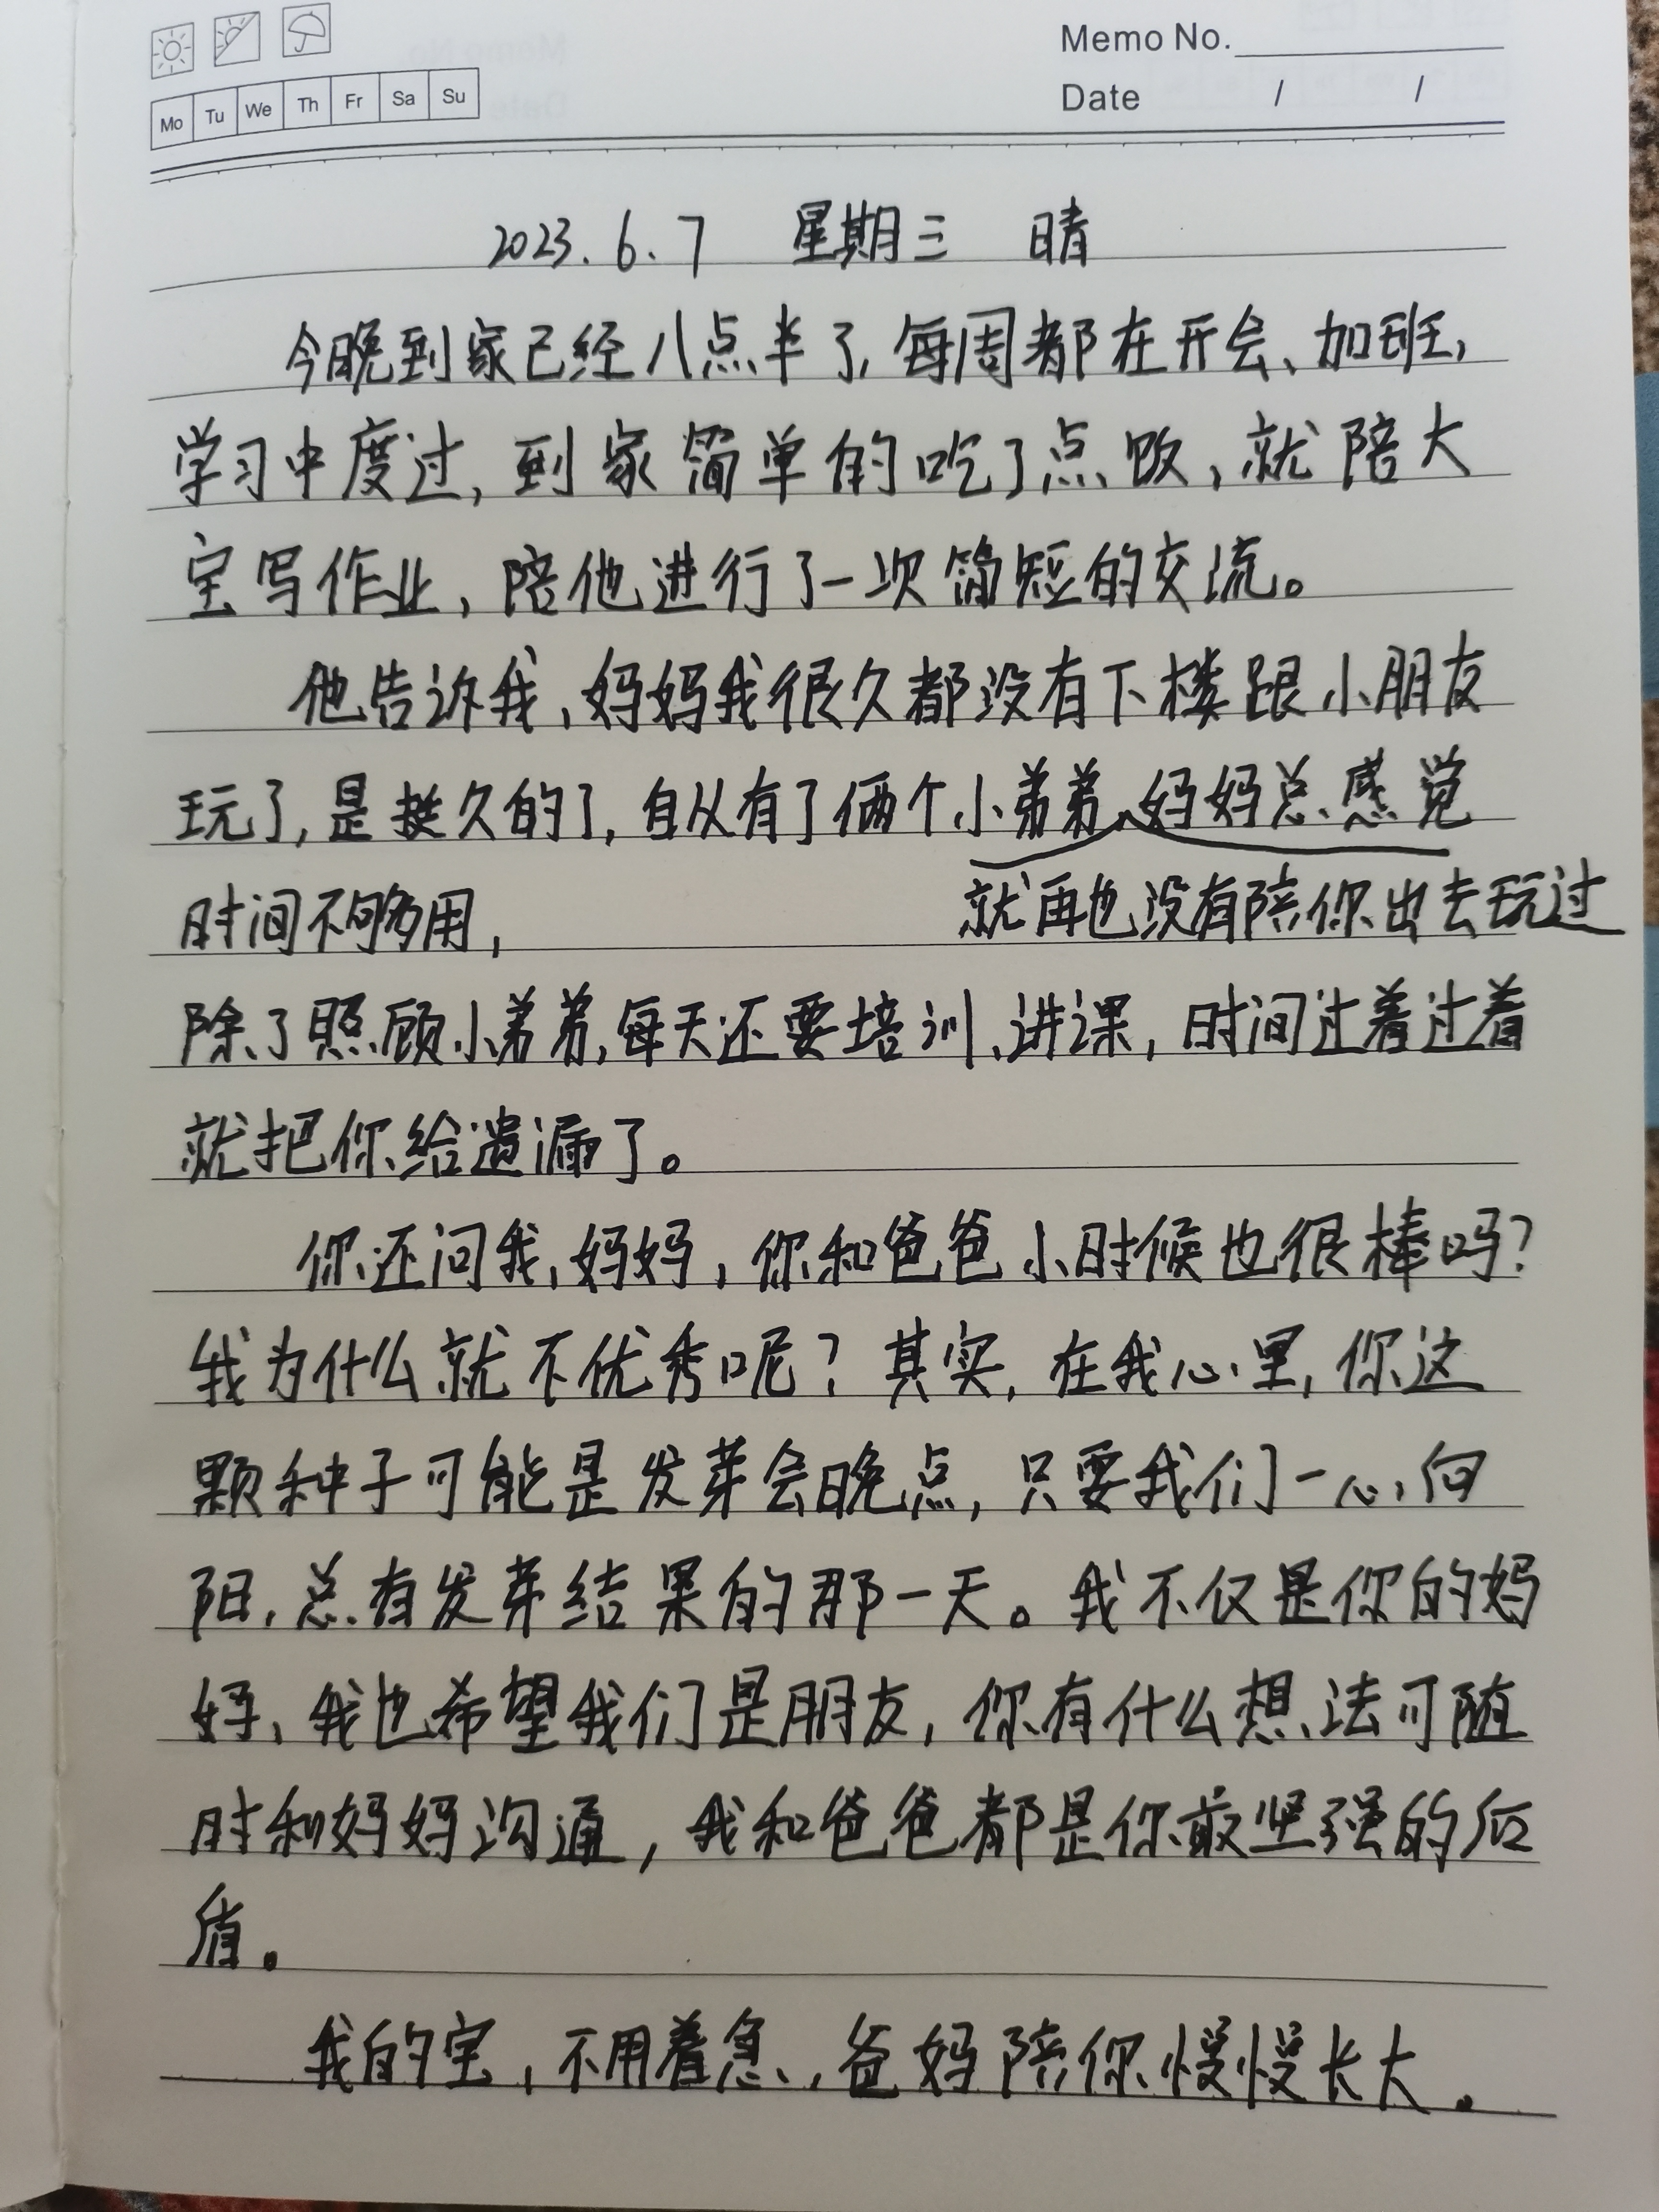 Memo No.
Mo Tu We Th Fr Sa Su
Date / /
2023.6.7 星期三 晴
今晚到家已经八点半了,每周都在开会、加班,
学习中度过,到家简单的吃了点饭,就陪大
宝写作业,陪他进行了一次简短的交流。
他告诉我,妈妈我很久都没有下楼跟小朋友
玩了,是挺久的了,自从有了俩个小弟弟、妈妈总感觉
时间不够用,
就再也没有陪你出去玩过
除了照顾小弟弟,每天还要培训、讲课,时间过着过着
就把你给遗漏了。
你还问我,妈妈,你和爸爸小时候也很棒吗?
我为什么就不优秀呢?其实,在我心里,你这
颗种子可能是发芽会晚点,只要我们一心向
阳,总有发芽结果的那一天。我不仅是你的妈
妈、我也希望我们是朋友,你有什么想法可随
时和妈妈沟通,我和爸爸都是你最坚强的后
盾。
我的宝,不用着急,爸妈陪你慢慢长大。